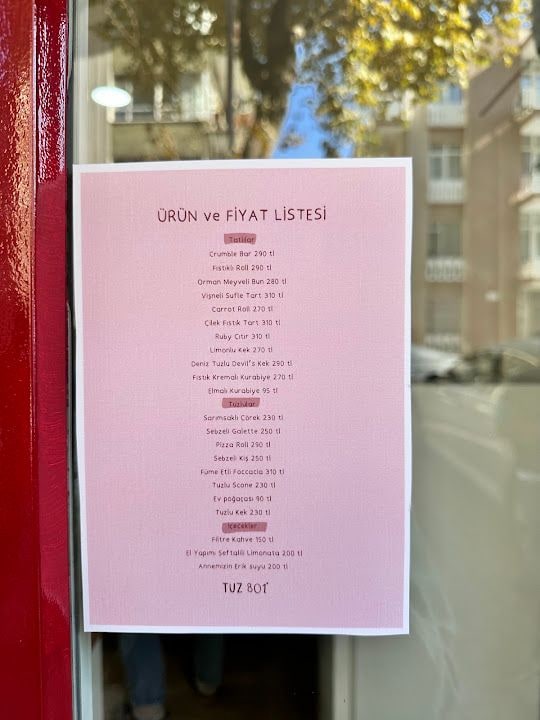 ÜRÜN ve FİYAT LİSTESİ
Tatlılar
Crumble Bar 290 tl
Fıstıklı Roll 290 tl
Orman Meyveli Bun 280 tl
Vişneli Sufle Tart 310 tl
Carrot Roll 270 tl
Çilek Fıstık Tart 310 tl
Ruby Çıtır 310 tl
Limonlu Kek 270 tl
Deniz Tuzlu Devil's Kek 290 tl
Fıstık Kremalı Kurabiye 270 tl
Elmalı Kurabiye 95 tl
Tuzlular
Sarımsaklı Çörek 230 tl
Sebzeli Galette 250 tl
Pizza Roll 290 tl
Sebzeli Kiş 250 tl
Füme Etli Foccacia 310 tl
Tuzlu Scone 230 tl
Ev poğaçası 90 tl
Tuzlu Kek 230 tl
İçecekler
Filtre Kahve 150 tl
El Yapımı Şeftalili Limonata 200 tl
Annemizin Erik suyu 200 tl
TUZ 801°